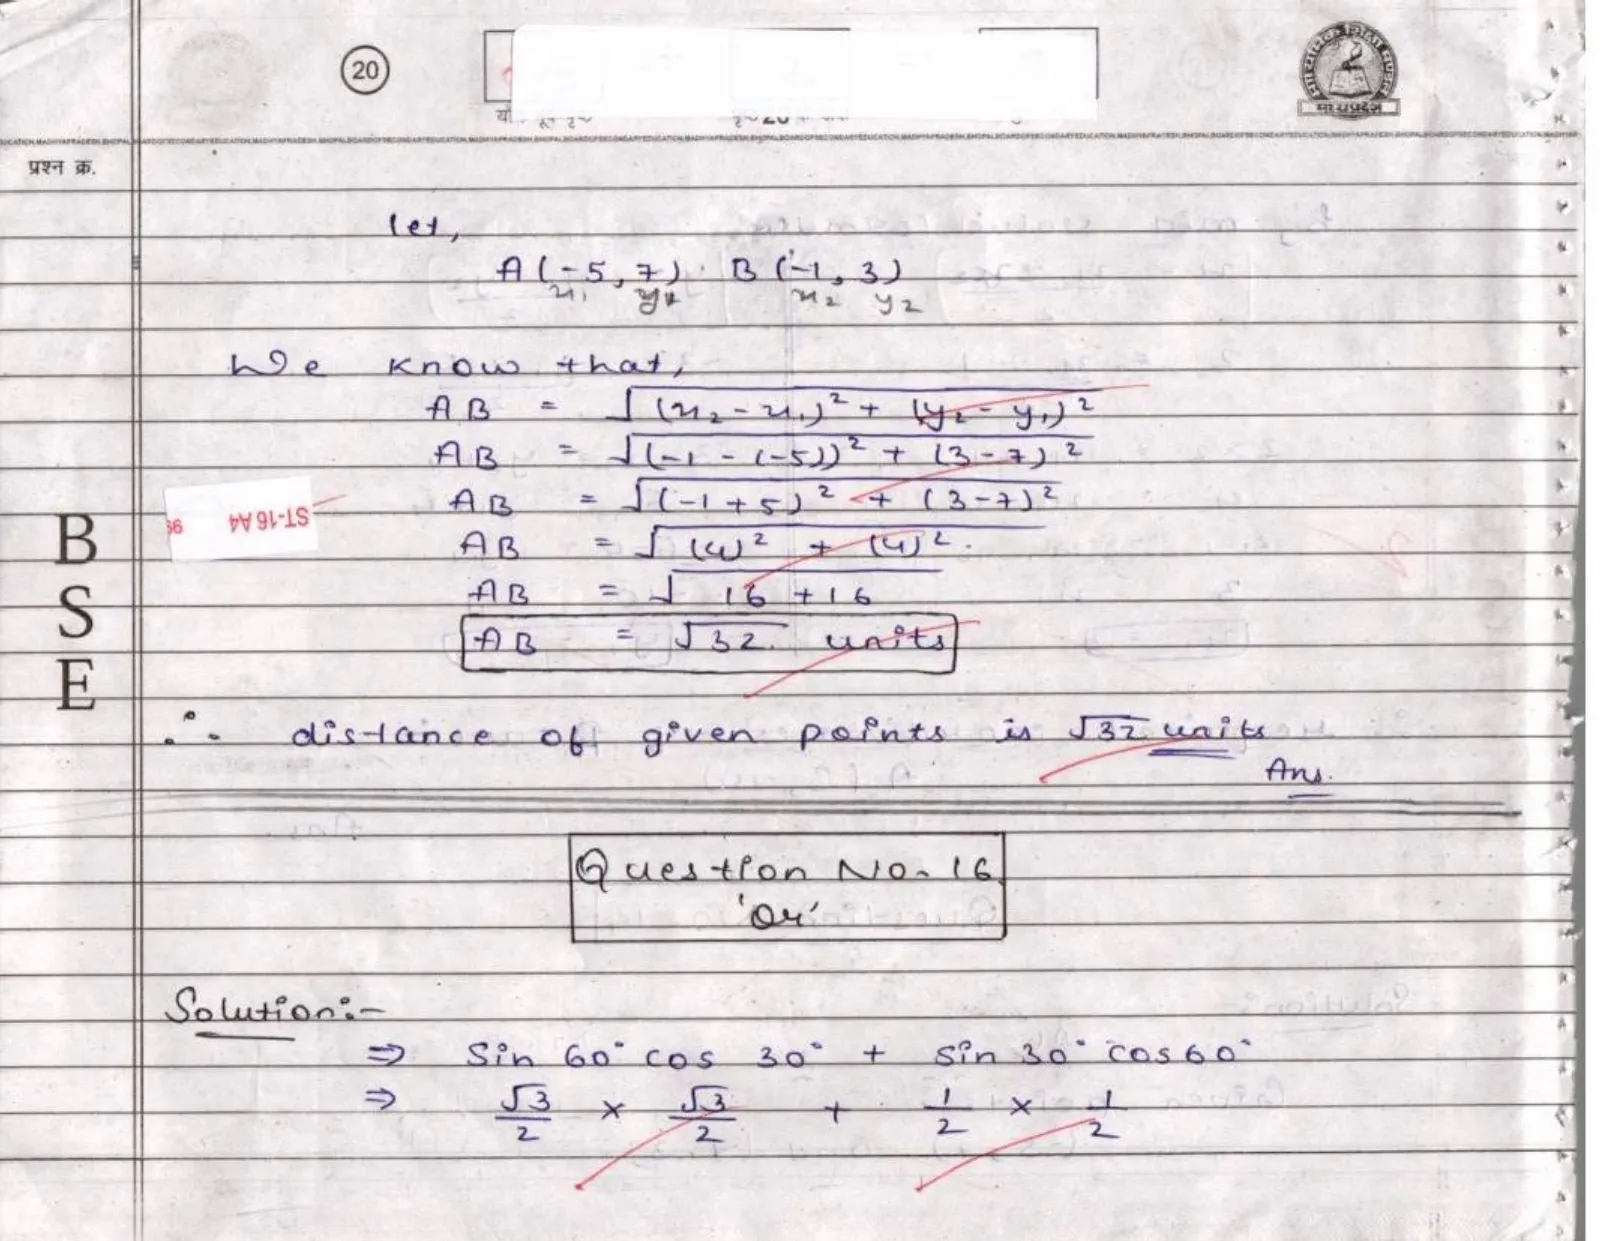 20
मध्यप्रदेश
प्रश्न क्र.
let,
A (-5, 7) B (-1, 3)
x₁ y₁ x₂ y₂
We know that,
AB = √(x₂ - x₁)² + (y₂ - y₁)²
AB = √(-1 - (-5))² + (3-7)²
AB = √(-1+5)² + (3-7)²
ST-16 A4
AB = √(4)² + (4)².
AB = √16 + 16
AB = √32. units
B
S
E
∴ distance of given points is √32 units
Ans.
Question No. 16
'Or'
Solution:-
⇒ Sin 60° cos 30° + Sin 30° cos 60°
⇒ √3/2 × √3/2 + 1/2 × 1/2